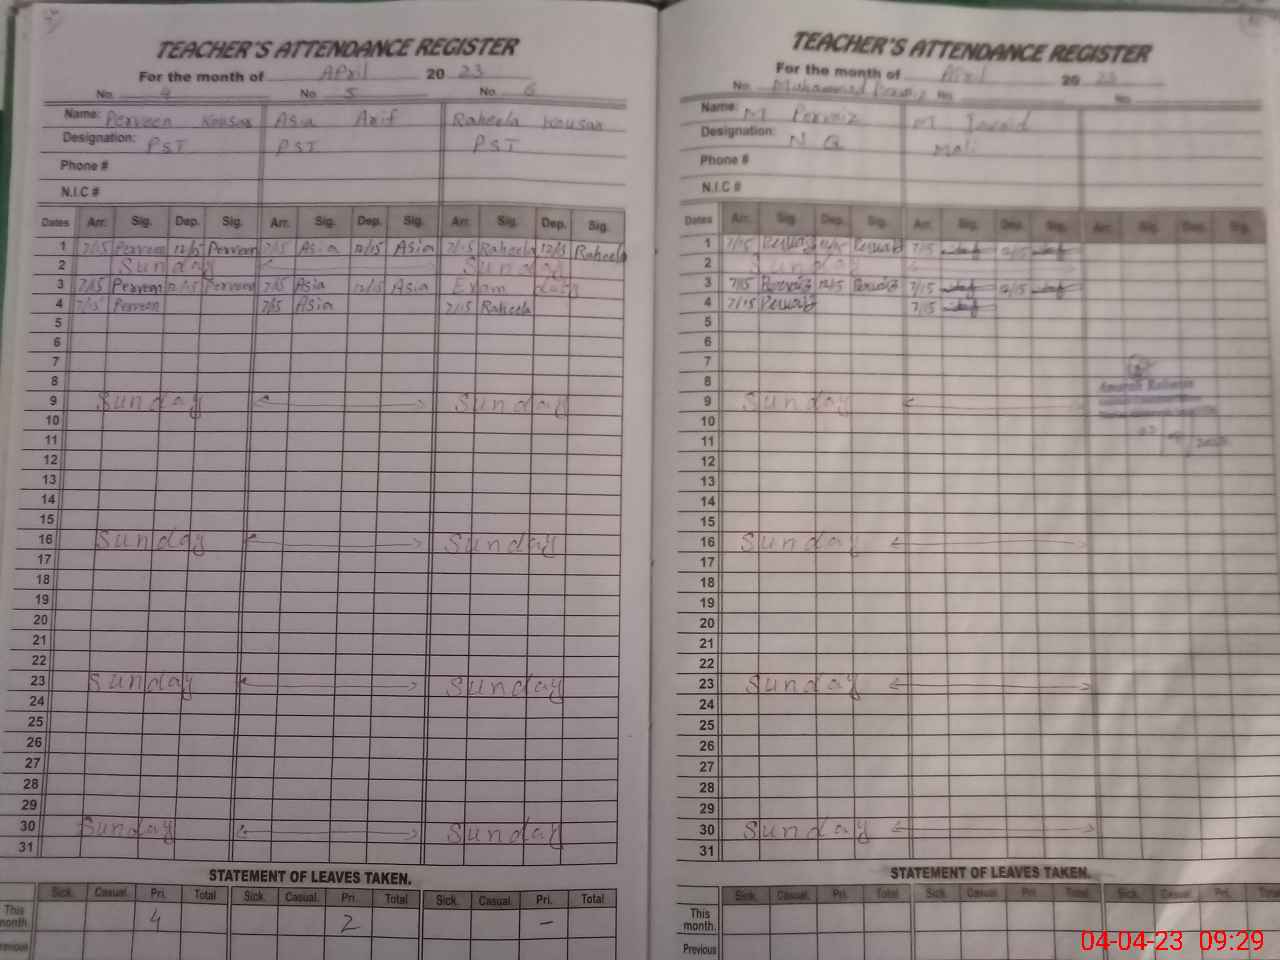 TEACHER'S ATTENDANCE REGISTER
For the month of April 20 23
No. 4 No. 5 No. 6
Name: Perveen Kousar Asia Arif Raheela Kousar
Designation: PST PST PST
Phone #
N.I.C #
Dates Arr. Sig. Dep. Sig. Arr. Sig. Dep. Sig. Arr. Sig. Dep. Sig.
1 7/15 Perveen 12/15 Perveen 7/15 Asia 12/15 Asia 7/15 Raheela 12/15 Raheela
2 Sunday Sunday
3 7/15 Perveen 12/15 Perveen 7/15 Asia 12/15 Asia Exam duty
4 7/15 Perveen 7/15 Asia 7/15 Raheela
5
6
7
8
9 Sunday Sunday
10
11
12
13
14
15
16 Sunday Sunday
17
18
19
20
21
22
23 Sunday Sunday
24
25
26
27
28
29
30 Sunday Sunday
31
STATEMENT OF LEAVES TAKEN.
Sick. Casual. Pri. Total Sick. Casual. Pri. Total Sick. Casual. Pri. Total
This month. 4 2 –
Previous
TEACHER'S ATTENDANCE REGISTER
For the month of April 20 23
No. Muhammad Pervaiz No. No.
Name: M Pervaiz M Javaid
Designation: N Q Mali
Phone #
N.I.C #
Dates Arr. Sig. Dep. Sig. Arr. Sig. Dep. Sig. Arr. Sig. Dep. Sig.
1 7/15 Pervaiz 12/15 Pervaiz 7/15 12/15
2 Sunday
3 7/15 Pervaiz 12/15 Pervaiz 7/15 12/15
4 7/15 Pervaiz 7/15
5
6
7
8
9 Sunday
10
11
12
13
14
15
16 Sunday
17
18
19
20
21
22
23 Sunday
24
25
26
27
28
29
30 Sunday
31
STATEMENT OF LEAVES TAKEN.
Sick. Casual. Pri. Total Sick. Casual. Pri. Total Sick. Casual. Pri. Total
This month.
Previous
04-04-23 09:29